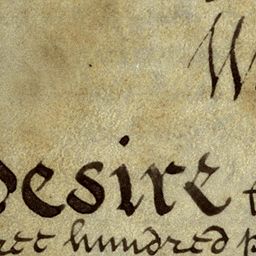 W
desire t
ree hundred p